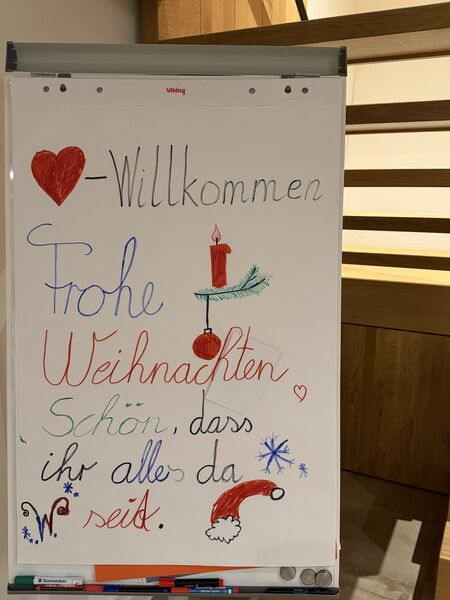 Viking
❤-Willkommen
Frohe
Weihnachten
Schön, dass
ihr alles da
seid.
.W.